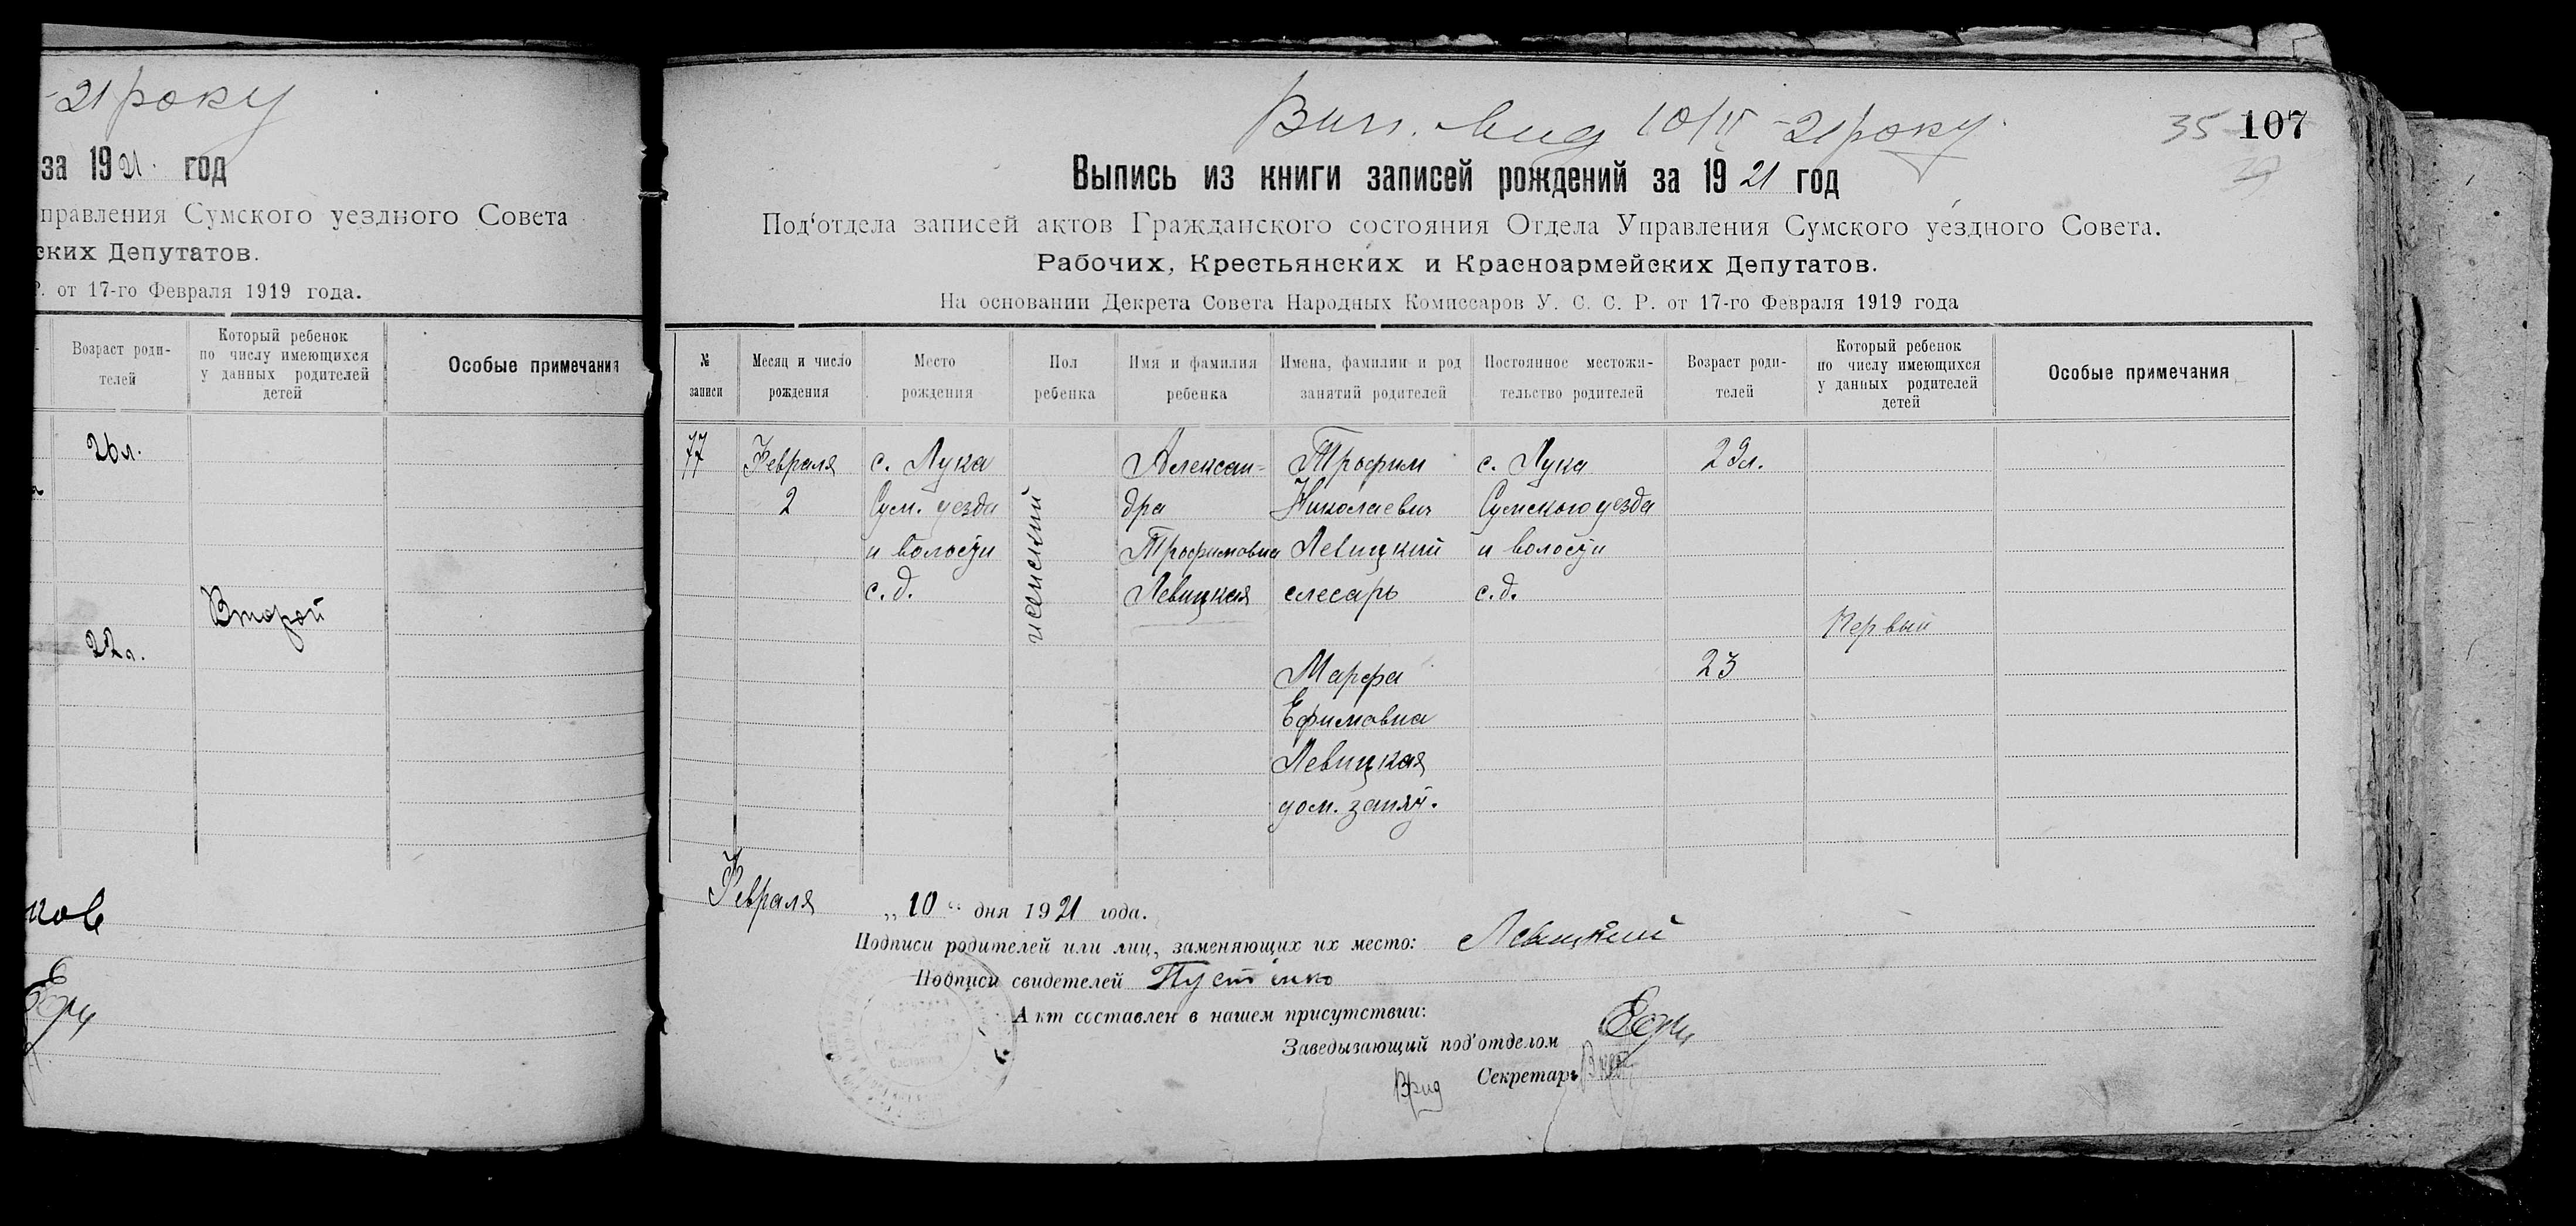 -21 року
за 1921. год
правления Сумского уездного Совета
ских Депутатов.
Р. от 17-го Февраля 1919 года.
Возраст роди-
телей
Который ребенок
по числу имеющихся
у данных родителей
детей
Особые примечания
26 л.
Второй
22 л.
ков
35 107
Вип. вид 10/IV -21 року.
Выпись из книги записей рождений за 1921 год
Под‘отдела записей актов Гражданского состояния Отдела Управления Сумского уездного Совета.
Рабочих, Крестьянских и Красноармейских Депутатов.
На основании Декрета Совета Народных Комиссаров У. С. С. Р. от 17-го Февраля 1919 года
№
записи
Месяц и число
рождения
Место
рождения
Пол
ребенка
Имя и фамилия
ребенка
Имена, фамилии и род
занятий родителей
Постоянное местожи-
тельство родителей
Возраст роди-
телей
Который ребенок
по числу имеющихся
у данных родителей
детей
Особые примечания
77
Февраля
2
с. Лука
Сум. уезда
и волости
с. д.
женский
Алексан-
дра
Трофимовна
Левицкая
Трофим
Николаевич
Левицкий
слесарь
Марфа
Ефимовна
Левицкая
дом. занят.
с. Лука
Сумского уезда
и волости
с. д.
29 л.
23
Первый
Февраля „10“ дня 1921 года.
Подписи родителей или лиц, заменяющих их место: Левицкий
Подписи свидетелей
Акт составлен в нашем присутствии:
Заведызающий под‘отделом
Врид Секретарь